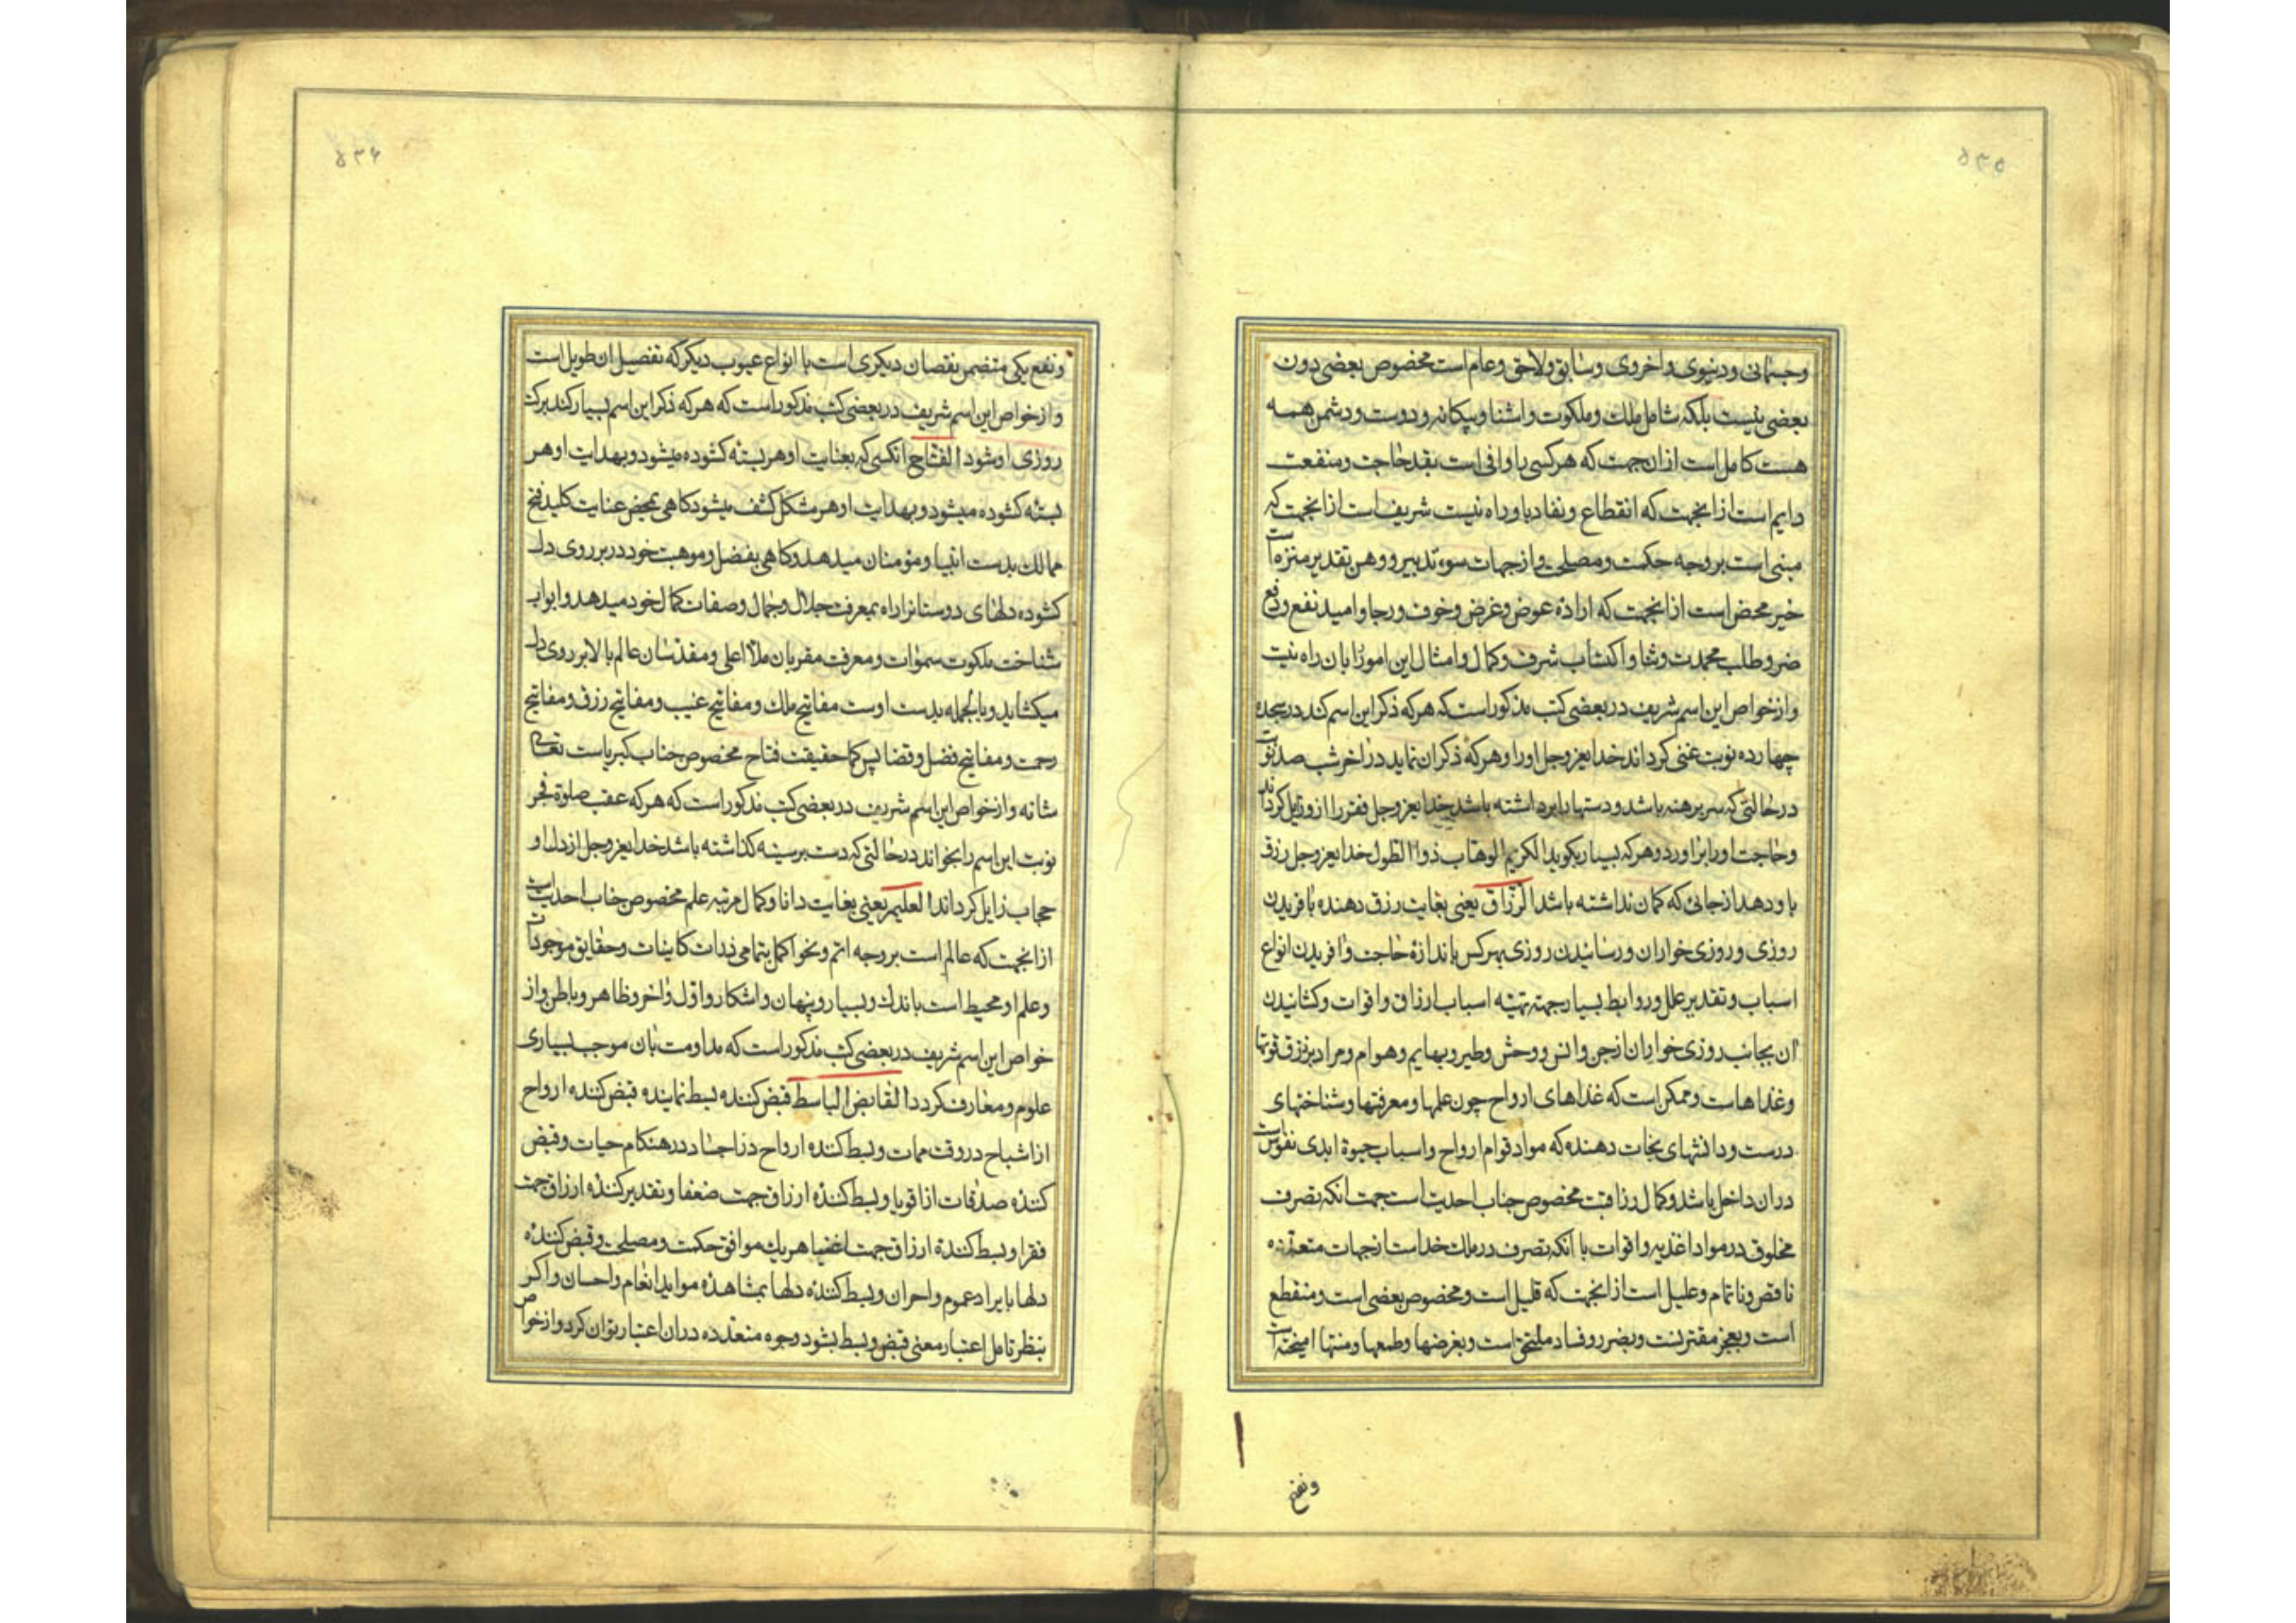 ۵۳۵
وجسمانی ودنیوی واخروی وسابق ولاحق وعام است مخصوص بعضی دون
بعضی نیست بلکه شامل ملک وملکوت واشنا وبیکانه ودوست ودشمن همه
هست کامل است ازان جهت که هرکسی را وافی است بقدر حاجت ومنفعت
دایم است ازانجهت که انقطاع ونفاد باو راه نیست شریف است ازانجهت که
مبنی است بر وجه حکمت ومصلحت واز جهات سوء تدبیر ووهن تقدیر منزه است
خیر محض است ازانجهت که اراده عوض وغرض وخوف ورجا وامید نفع ودفع
ضر وطلب محمدت وثنا واکتساب شرف وکمال وامثال این امور را بان راه نیست
واز خواص این اسم شریف در بعضی کتب مذکور است که هرکه ذکر این اسم کند در سجده
چهارده نوبت غنی کرداند خدایعزوجل اورا وهرکه ذکر ان نماید در اخر شب صد نوبت
درحالتی که سر برهنه باشد ودستها را برداشته باشد خدایعزوجل فقر را ازو زایل کرداند
وحاجت اورا براورد وهرکه بسیار بکوید الکریم الوهاب ذو الطول خدایعزوجل رزق
باو دهد ازجائی که کمان نداشته باشد الرزاق یعنی بغایت رزق دهنده بافریدن
روزی وروزی خواران ورسانیدن روزی بهرکس باندازهٔ حاجت وافریدن انواع
اسباب وتقدیر علل وروابط بسیار جهته تهیه اسباب ارزاق واقوات وکشانیدن
ان بجانب روزی خواران ازجن وانس ووحش وطیر وبهایم وهوام ومراد برزق قوتها
وغذاهاست وممکن است که غذاهای ارواح چون علمها ومعرفتها وشناختهای
درست ودانشهای نجات دهنده که مواد قوام ارواح واسباب حیوة ابدی نفوس است
دران داخل باشد وکمال رزاقیت مخصوص جناب احدیت است جهت انکه تصرف
مخلوق در مواد اغذیه واقوات با انکه تصرف در ملک خداست ازجهات متعدده
ناقص وناتمام وعلیل است ازانجهت که قلیل است ومخصوص بعضی است ومنقطع
است وبعجز مقترنست وبضرر وفساد ملتحق است وبغرضها وطمعها ومنتها امیخته است
ونفع
۵۳۶
ونفع یکی متضمن نقصان دیکری است با انواع عیوب دیکر که تفصیل ان طویل است
واز خواص این اسم شریف در بعضی کتب مذکور است که هرکه ذکر این اسم بسیار کند برکت
روزی او شود الفتاح انکسی که بعنایت او هر بسته کشوده میشود وبهدایت او هر
بسته کشوده میشود وبهدایت او هر مشکل کشف میشود کاهی بمحض عنایت کلید فتح
ممالک بدست انبیا ومؤمنان میدهد وکاهی بفضل وموهبت خود در بر روی دل
کشوده دلهای دوستانرا راه بمعرفت جلال وجمال وصفات کمال خود میدهد وابواب
شناخت ملکوت سموات ومعرفت مقربان ملأ اعلی ومقدسان عالم بالا بر روی دل
میکشاید وبالجمله بدست اوست مفاتیح ملک ومفاتیح غیب ومفاتیح رزق ومفاتیح
رحمت ومفاتیح فضل وقضا پس کما حقیقت فتاح مخصوص جناب کبریاست تعالی
شانه واز خواص این اسم شریف در بعضی کتب مذکور است که هرکه عقب صلوة فجر
نوبت این اسم را بخواند درحالتی که دست بر سینه کذاشته باشد خدایعزوجل از دل او
حجاب زایل کرداند العلیم یعنی بغایت دانا وکمال مرتبه علم مخصوص جناب احدیت است
ازانجهت که عالم است بر وجه اتم ونحو اکمل بتمامی ذرات کاینات وحقایق موجودات
وعلم او محیط است باندک وبسیار وپنهان واشکار واول واخر وظاهر وباطن واز
خواص این اسم شریف در بعضی کتب مذکور است که مداومت بان موجب بسیاری
علوم ومعارف کردد القابض الباسط قبض کننده بسط نماینده قبض کننده ارواح
از اشباح در وقت ممات وبسط کننده ارواح در اجساد در هنکام حیات وقبض
کننده صدقات از اقویا وبسط کننده ارزاق جهت ضعفا وتقدیر کننده ارزاق جهت
فقرا وبسط کننده ارزاق جهت اغنیا هریک موافق حکمت ومصلحت وقبض کننده
دلها بایراد عموم واحران وبسط کننده دلها بمشاهده مواید انعام واحسان واکر
بنظر تامل اعتبار معنی قبض وبسط بشود وجوه متعدده دران اعتبار توان کرد واز خواص